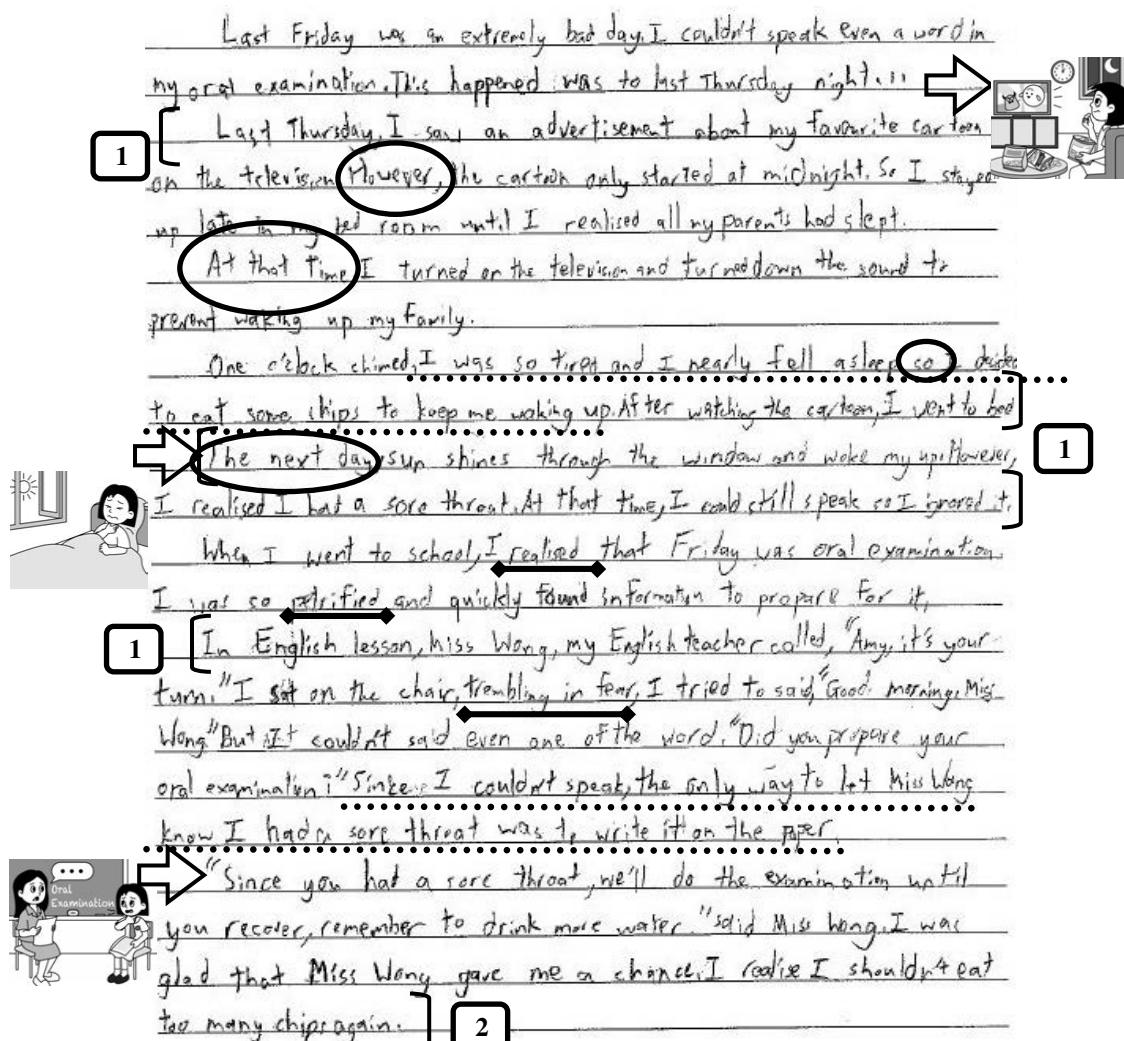 Last Friday was an extremely bad day. I couldn't speak even a word in
my oral examination. This happened was to last Thursday night...
Last Thursday, I saw an advertisement about my favourite cartoon
1
on the television. However, the cartoon only started at midnight. So I stayed
up late in my bed room until I realised all my parents had slept.
At that time I turned on the television and turned down the sound to
prevent waking up my family.
One o'clock chimed, I was so tired and I nearly fell asleep so I decided
to eat some chips to keep me waking up. After watching the cartoon, I went to bed
The next day, sun shines through the window and woke my up. However,
1
I realised I had a sore throat. At that time, I could still speak so I ignored it.
When I went to school, I realised that Friday was oral examination
I was so petrified and quickly found information to prepare for it.
1
In English lesson, Miss Wong, my English teacher called, "Amy, it's your
turn." I sat on the chair, trembling in fear, I tried to said, "Good morning, Miss
Wong." But I couldn't said even one of the word. "Did you prepare your
oral examination?" Since I couldn't speak, the only way to let Miss Wong
know I had a sore throat was to write it on the paper.
Oral
Examination
"Since you had a sore throat, we'll do the examination until
you recover, remember to drink more water." said Miss Wong. I was
glad that Miss Wong gave me a chance. I realise I shouldn't eat
too many chips again.
2